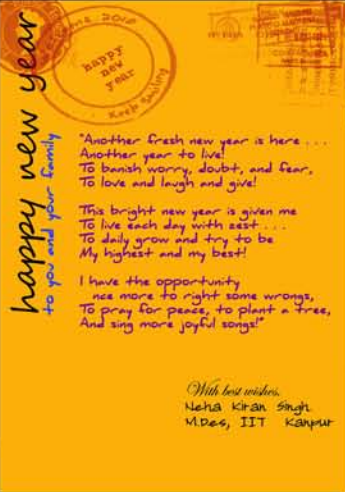 2010
happy
new
year
Keep Smiling
happy new year
to you and your family
"Another fresh new year is here . . .
Another year to live!
To banish worry, doubt, and fear,
To love and laugh and give!
This bright new year is given me
To live each day with zest . . .
To daily grow and try to be
My highest and my best!
I have the opportunity
nce more to right some wrongs,
To pray for peace, to plant a tree,
And sing more joyful songs!"
With best wishes,
Neha Kiran Singh
M.Des, IIT Kanpur